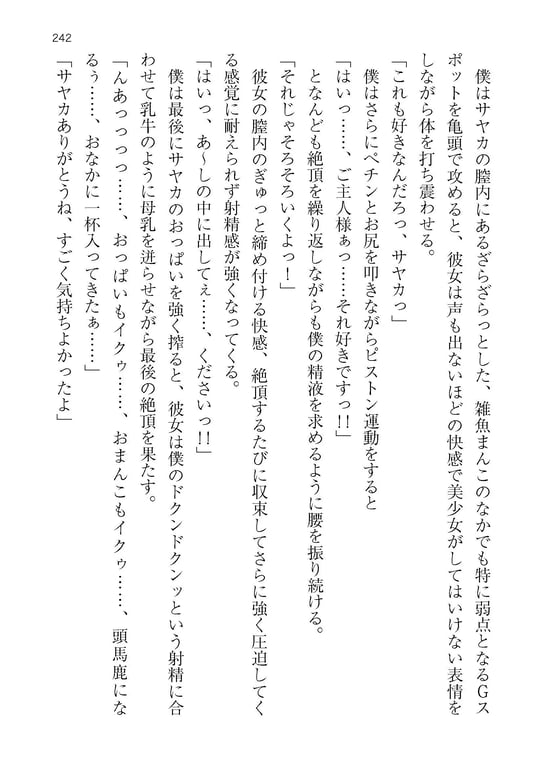 242
僕はサヤカの膣内にあるざらざらっとした、雑魚まんこのなかでも特に弱点となるGス
ポットを亀頭で攻めると、彼女は声も出ないほどの快感で美少女がしてはいけない表情を
しながら体を打ち震わせる。
「これも好きなんだろっ、サヤカっ」
僕はさらにペチンとお尻を叩きながらピストン運動をすると
「はいっ……、ご主人様ぁっ……それ好きですっ!!」
となんども絶頂を繰り返しながらも僕の精液を求めるように腰を振り続ける。
「それじゃそろそろいくよっ！」
彼女の膣内のぎゅっと締め付ける快感、絶頂するたびに収束してさらに強く圧迫してく
る感覚に耐えられず射精感が強くなってくる。
「はいっ、あ～しの中に出してぇ……、くださいっ!!」
僕は最後にサヤカのおっぱいを強く搾ると、彼女は僕のドクンドクンッという射精に合
わせて乳牛のように母乳を迸らせながら最後の絶頂を果たす。
「んあっっっっ……、おっぱいもイクゥ……、おまんこもイクゥ……、頭馬鹿にな
るぅ……、おなかに一杯入ってきたぁ……」
「サヤカありがとうね、すごく気持ちよかったよ」